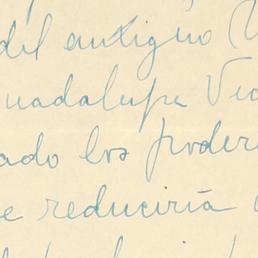 del antiguo
Guadalupe Vic
ado los poder
e reduciría